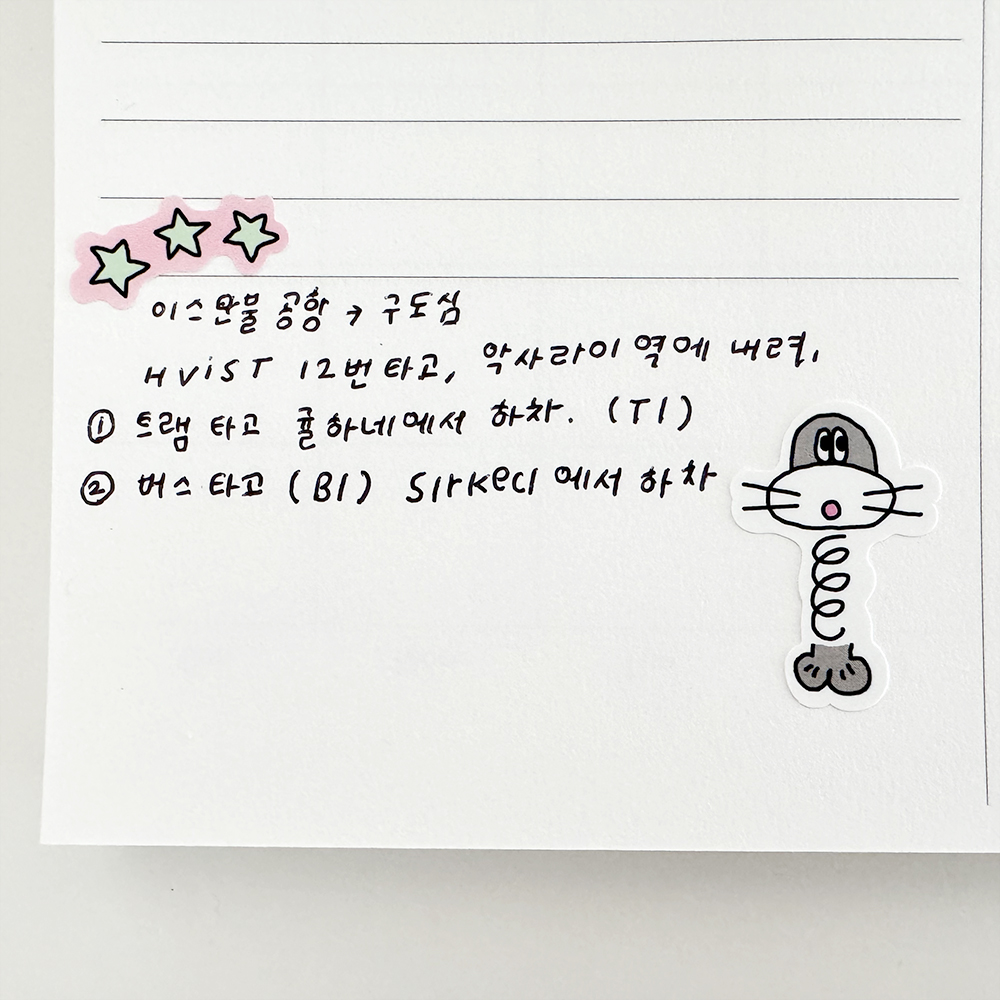 이스탄불 공항 → 구도심
HViST 12번 타고, 악사라이 역에 내려.
① 트램 타고 귤하네에서 하차. (T1)
② 버스 타고 (B1) Sirkeci에서 하차